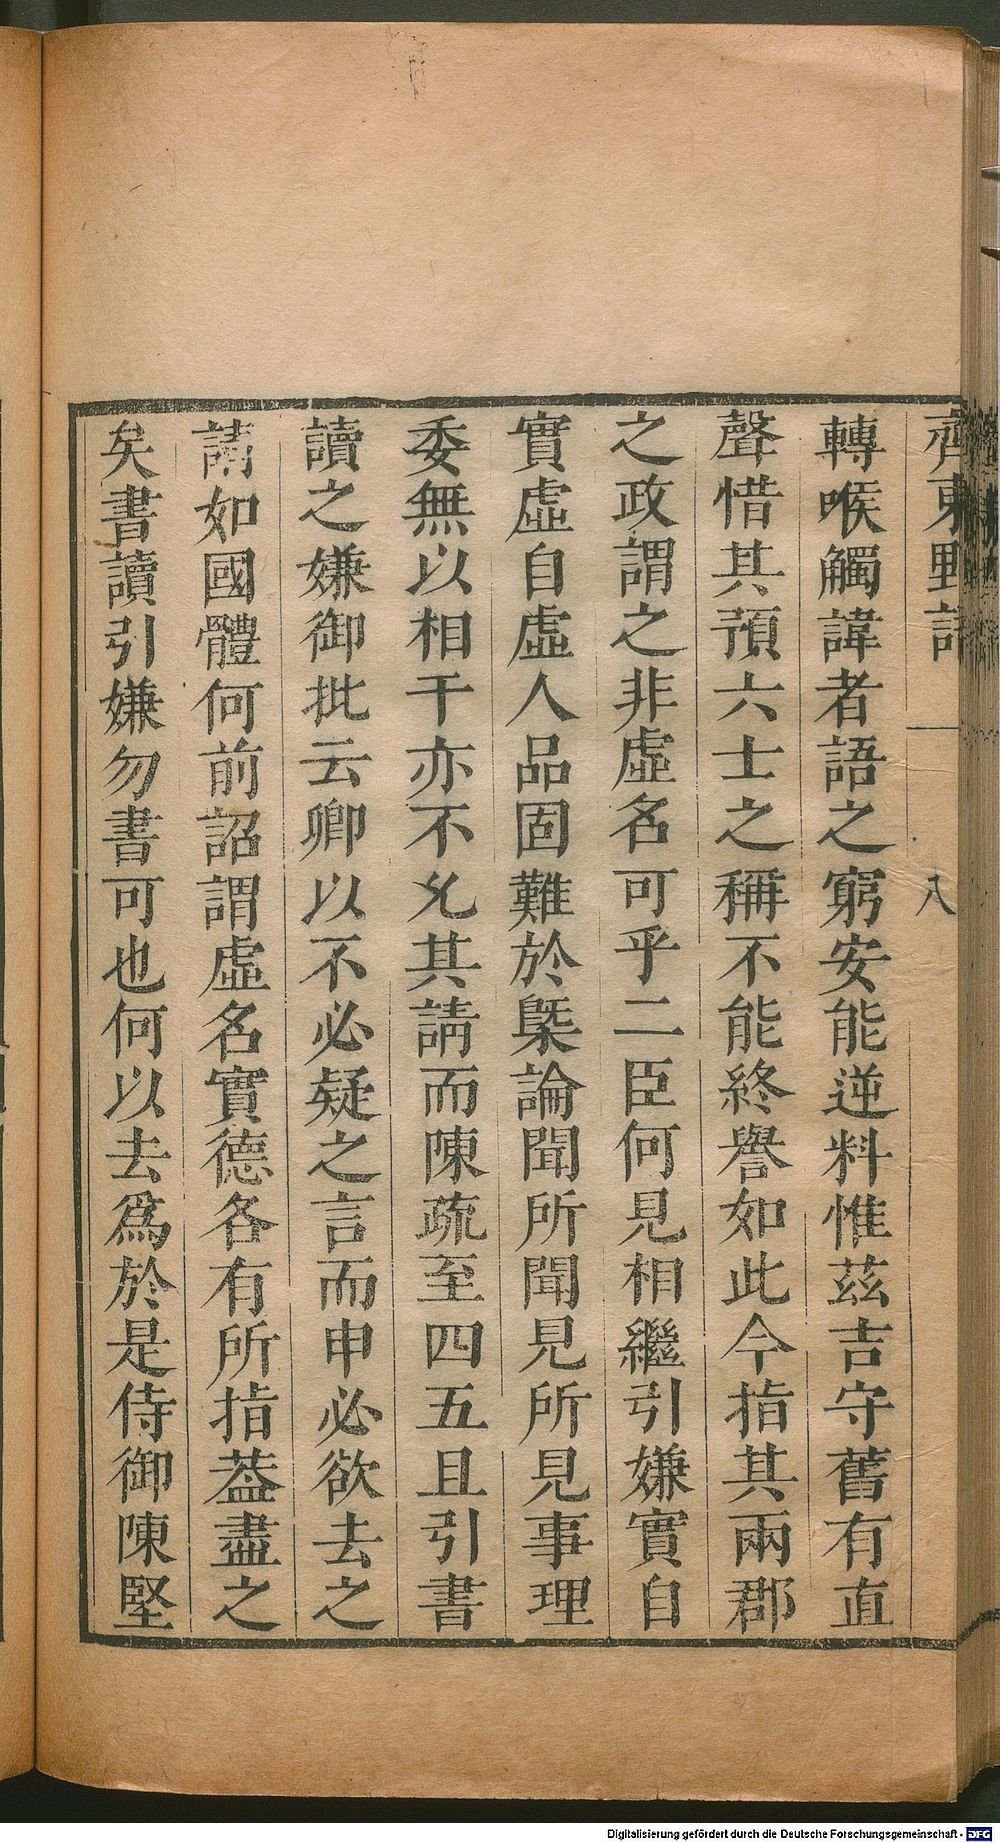 齊東野語
八
轉喉觸諱者語之窮安能逆料惟茲吉守舊有直
聲惜其預六士之稱不能終譽如此今指其兩郡
之政謂之非虛名可乎二臣何見相繼引嫌實自
實虛自虛人品固難於槩論聞所聞見所見事理
委無以相干亦不允其請而陳疏至四五且引書
讀之嫌御批云卿以不必疑之言而申必欲去之
請如國體何前詔謂虛名實德各有所指葢盡之
矣書讀引嫌勿書可也何以去爲於是侍御陳堅
Digitalisierung gefördert durch die Deutsche Forschungsgemeinschaft - DFG